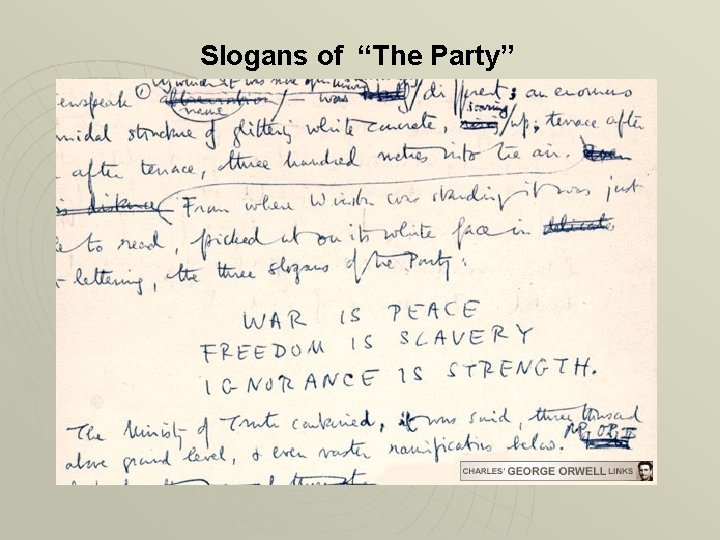 Slogans of “The Party”
by which it was
Newspeak ① name was different; an enormous
midal structure of glittering white concrete, soaring up, terrace after
after terrace, three hundred metres into the air.
distance From where Winston was standing it was just
to read, picked out on its white face in
lettering, the three slogans of the Party:
WAR IS PEACE
FREEDOM IS SLAVERY
IGNORANCE IS STRENGTH.
The Ministry of Truth contained, it was said, three thousand
above ground level, & even vaster ramifications below.
CHARLES' GEORGE ORWELL LINKS